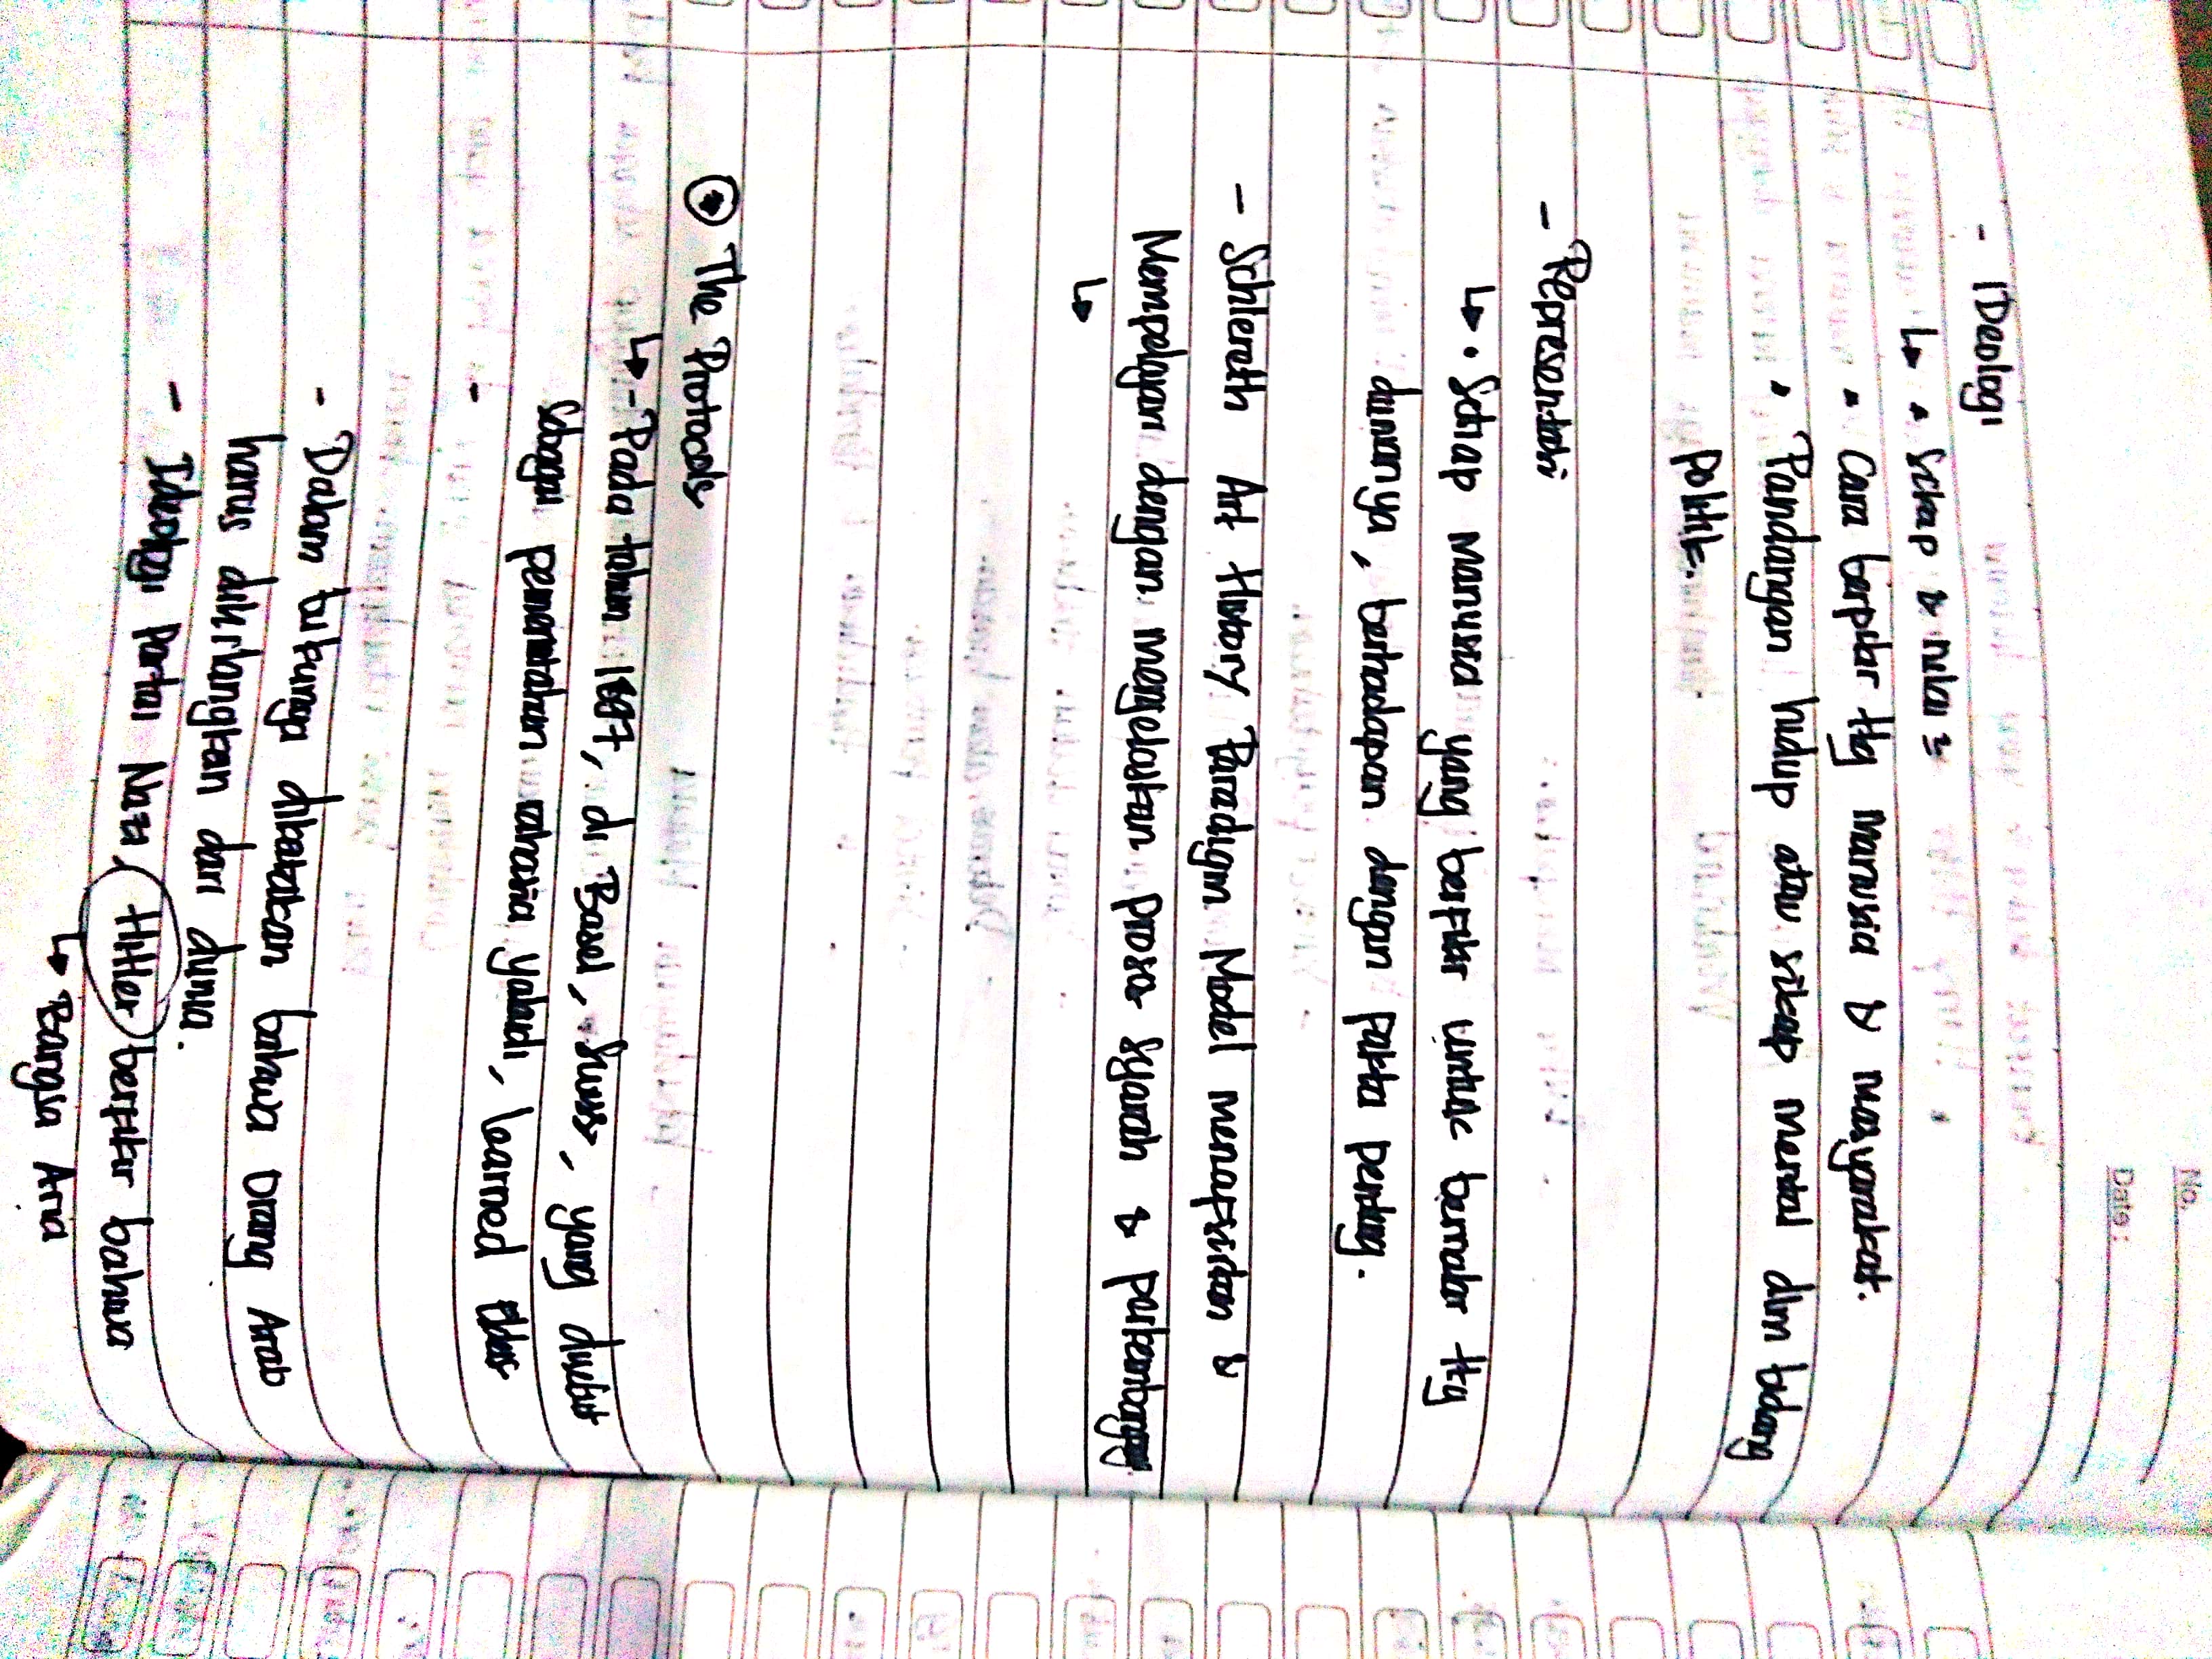 No.
Date:
- IDeologi
↳ • Sikap & nilai ²
• Cara berpikir ttg Manusia & masyarakat.
• Pandangan hidup atau sikap Mental dlm bidang
Politik.
- Representasi
↳ • Setiap Manusia yang berfikir untuk bernalar ttg
dunianya, berhadapan dengan fakta penting.
- Schlereth Art History Paradigm Model menafsirkan &
Mempelajari dengan menjelaskan proses Syarah &
↳
The Protocols
↳ - Pada tahun 1897, di Basel, Swiss, yang disebut
Sebagai pemerintahan rahasia yahudi, learned Elders
-
- Dalam bukunya dikatakan bahwa Orang Arab
harus dihilangkan dari dunia.
- Ideologi Partai Nazi, Hitler berfikir bahwa
↳ Bangsa Arya